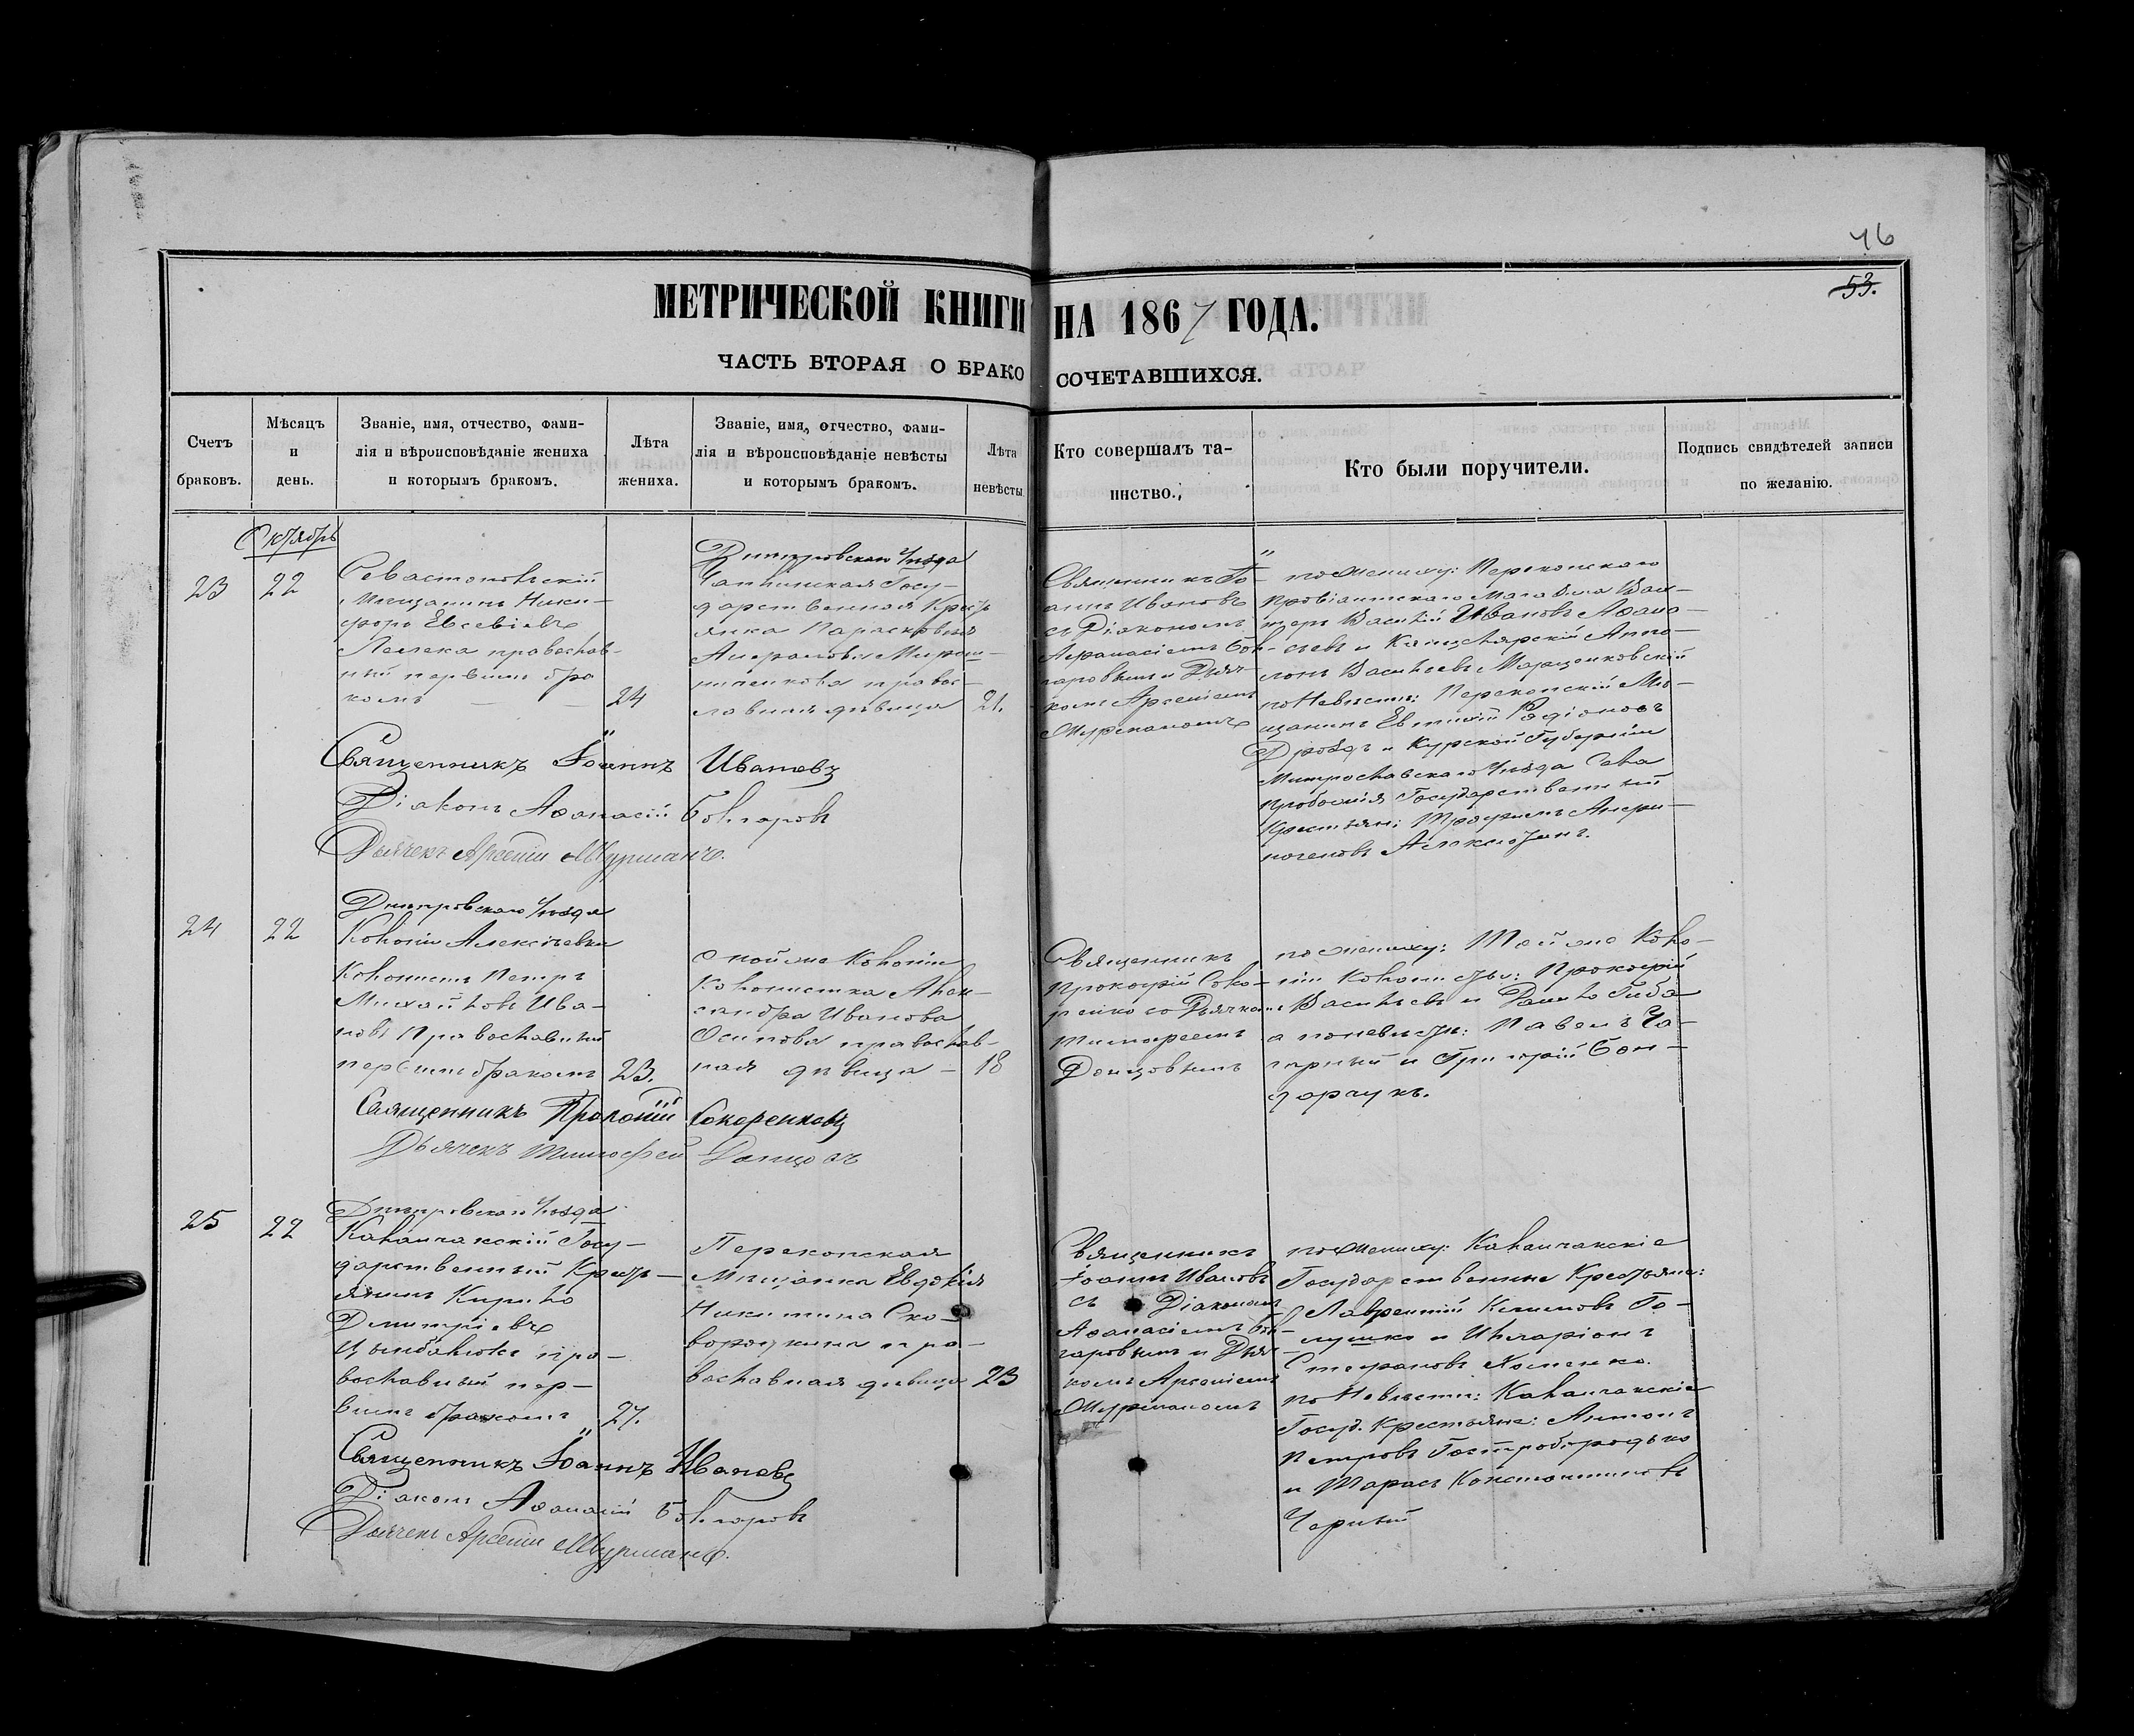 46
53.
МЕТРИЧЕСКОЙ КНИГИ НА 1867 ГОДА.
ЧАСТЬ ВТОРАЯ О БРАКОСОЧЕТАВШИХСЯ.
Счетъ
браковъ.
Мѣсяцъ
и
день.
Званіе, имя, отчество, фами-
лія и вѣроисповѣданіе жениха
и которымъ бракомъ.
Лѣта
жениха.
Званіе, имя, отчество, фами-
лія и вѣроисповѣданіе невѣсты
и которымъ бракомъ.
Лѣта
невѣсты
Кто совершалъ та-
инство.
Кто были поручители.
Подпись свидѣтелей записи
по желанію.
Октябрь
23
22
Севастопольскій
Мѣщанинъ Ники-
форъ Евсевіевъ
православ-
ный первымъ бра
комъ
24
Днѣпровскаго Уѣзда
Чаплинская Госу-
дарственная Кресть
янка Парасковія
православ-
ная дѣвица
21.
Священникъ Іо-
аннъ Ивановъ
съ Діакономъ
Аѳанасіемъ Бол-
гаровымъ и Дьяч-
комъ Арсеніемъ
Мурманомъ
по Женихѣ: Перекопскаго
Провіантскаго Магазина Вах-
теръ Василій Ивановъ Аѳана-
сьевъ и Канцелярскій Апо-
лонъ Васильевъ Марценковскій
по Невѣстѣ: Перекопскій Мѣ-
щанинъ Евтихій Родіоновъ
Дроздъ и Курской Губерніи
Уѣзда Села
Государственный
Крестьян: Трофимъ
Священникъ Іоаннъ Ивановъ
Діаконъ Аѳанасій Болгаровъ
Дьячекъ Арсеній Мурманъ.
24
22
Днѣпровскаго Уѣзда
Колоніи Алексѣевки
Колонистъ Петръ
Михайловъ Ива-
новъ Православный
первымъ бракомъ
23.
Колоніи
Колонистка Алек-
сандра Иванова
Осипова православ-
ная дѣвица
18
Священникъ
Прокофій Соко-
ренко съ Дьячкомъ
Тимофеемъ
Донцовымъ
по жениху: Той же Коло-
ніи Колонисты: Прокофій
Васильевъ и Данило Гиба
а по невѣстѣ: Павелъ Ча-
и Григорій Бон-
дарчукъ.
Священникъ Прокофій Сокоренковъ
Дьячекъ Тимофей Донцовъ
25
22
Днѣпровскаго Уѣзда
Каланчакскій Госу-
дарственный Кресть-
янинъ Кирило
Дмитріевъ
Цымбалюкъ пра-
вославный пер-
вымъ бракомъ
27.
Перекопская
Мѣщанка Евдокія
Никитина Ско-
вородкина пра-
вославная дѣвица
23
Священникъ
Іоаннъ Ивановъ
съ Діакономъ
Аѳанасіемъ Бол-
гаровымъ и Дьяч
комъ Арсеніемъ
Мурманомъ
по Жениху: Каланчакскіе
Государственные Крестьяне:
Лаврентій Климовъ Га-
лушко и Иларіонъ
Стефановъ Хоменко.
по Невѣстѣ: Каланчакскіе
Госуд. Крестьяне: Антонъ
Петровъ Гостробородько
и Тарасъ Константиновъ
Чорный
Священникъ Іоаннъ Ивановъ
Діаконъ Аѳанасій Болгаровъ
Дьячекъ Арсеній Мурманъ.